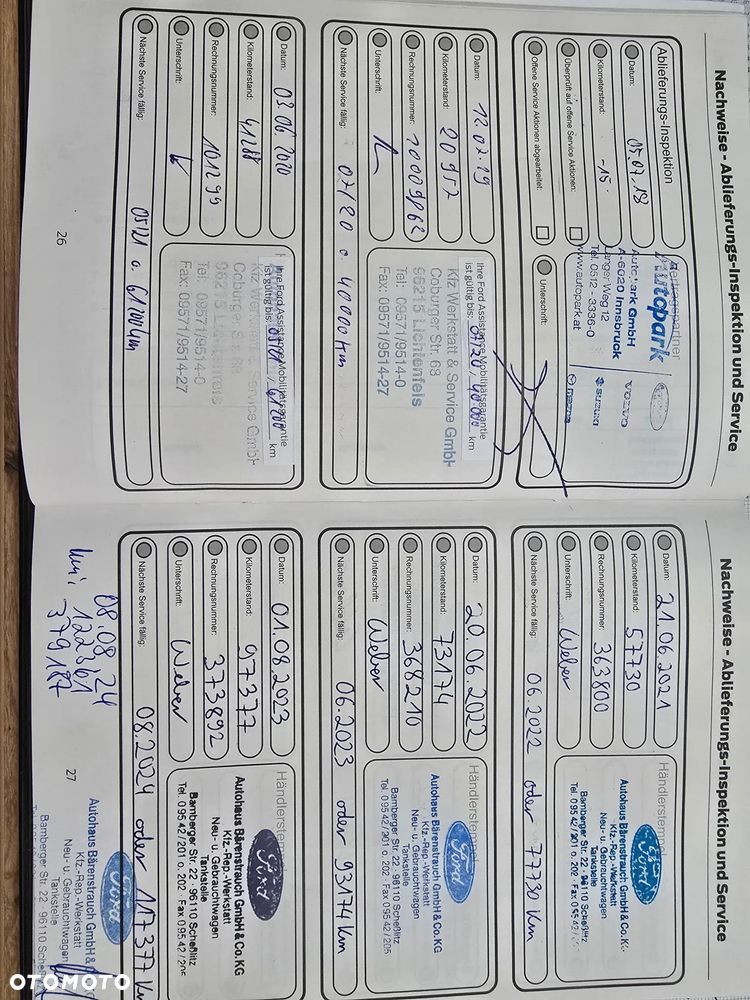 Nachweise - Ablieferungs-Inspektion und Service
Ablieferungs-Inspektion
Datum: 05.07.18
Kilometerstand: -15-
Überprüft auf offene Service Aktionen:
Offene Service Aktionen abgearbeitet:
Vertragspartner
Autopark
Autopark GmbH
A-6020 Innsbruck
Langer Weg 12
Tel. 0512 - 3336-0
www.autopark.at
Ford
VOLVO
SUZUKI
mazda
Unterschrift:
Datum: 12.07.19
Kilometerstand: 20957
Rechnungsnummer: 10009862
Unterschrift:
Nächste Service fällig: 07/20 o. 40000 km
Ihre Ford Assistance Mobilitätsgarantie
ist gültig bis: 07/20 / 40.000 km
Kfz Werkstatt & Service GmbH
Coburger Str. 68
96215 Lichtenfels
Tel: 09571/9514-0
Fax: 09571/9514-27
Datum: 03.06.2020
Kilometerstand: 41288
Rechnungsnummer: 101299
Unterschrift:
Nächste Service fällig: 05/21 o. 61200 km
Ihre Ford Assistance Mobilitätsgarantie
ist gültig bis: 05/21 / 61200 km
Kfz Werkstatt & Service GmbH
Coburger Str. 68
96215 Lichtenfels
Tel: 09571/9514-0
Fax: 09571/9514-27
26
Nachweise - Ablieferungs-Inspektion und Service
Datum: 21.06.2021
Kilometerstand: 57730
Rechnungsnummer: 363800
Unterschrift: Weber
Nächste Service fällig: 06.2022 oder 77730 Km
Händlerstempel
Ford
Autohaus Bärenstrauch GmbH & Co. KG
Kfz.-Rep.-Werkstatt
Neu- u. Gebrauchtwagen
Tankstelle
Bamberger Str. 22 · 96110 Scheßlitz
Tel. 0 95 42 / 201 o. 202 · Fax 0 95 42 / 205
Datum: 20.06.2022
Kilometerstand: 73174
Rechnungsnummer: 368210
Unterschrift: Weber
Nächste Service fällig: 06.2023 oder 93174 Km
Händlerstempel
Ford
Autohaus Bärenstrauch GmbH & Co. KG
Kfz.-Rep.-Werkstatt
Neu- u. Gebrauchtwagen
Tankstelle
Bamberger Str. 22 · 96110 Scheßlitz
Tel. 0 95 42 / 201 o. 202 · Fax 0 95 42 / 205
Datum: 01.08.2023
Kilometerstand: 97377
Rechnungsnummer: 373892
Unterschrift: Weber
Nächste Service fällig: 08.2024 oder 117377 Km
Händlerstempel
Ford
Autohaus Bärenstrauch GmbH & Co. KG
Kfz.-Rep.-Werkstatt
Neu- u. Gebrauchtwagen
Tankstelle
Bamberger Str. 22 · 96110 Scheßlitz
Tel. 0 95 42 / 201 o. 202 · Fax 0 95 42 / 205
08.08.24
122361
379187
27
Ford
Autohaus Bärenstrauch GmbH &
Kfz.-Rep.-Werkstatt
Neu- u. Gebrauchtwagen
Tankstelle
Bamberger Str. 22 · 96110 Scheßlitz
OTOMOTO